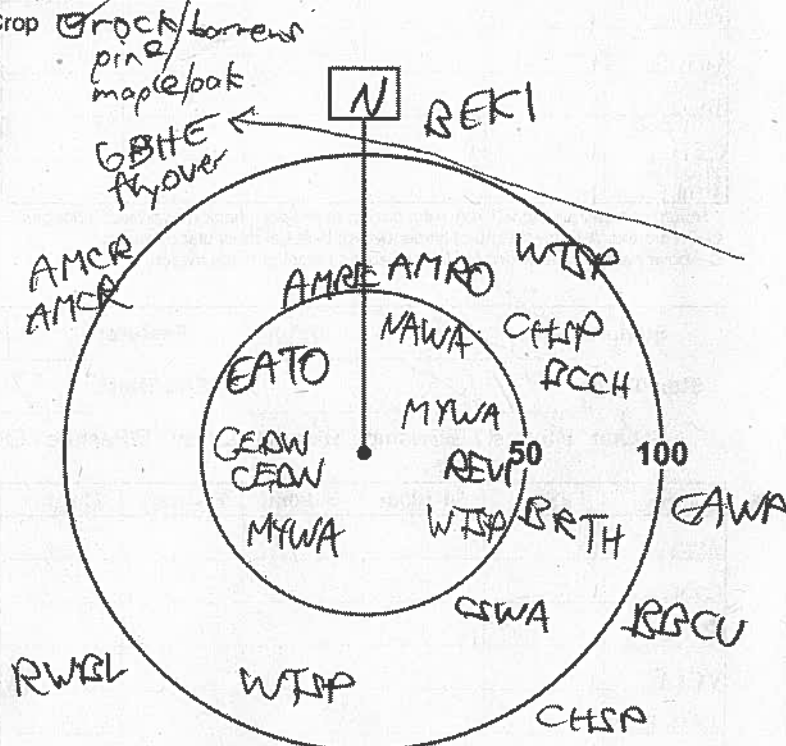 Crop rock/barrens
pine/
maple/oak
N
BEKI
GBHE
flyover
WTSP
AMCR
AMCR
AMRE AMRO
NAWA
CHSP
BCCH
EATO
MYWA
CEDW
CEDW
REVI
50
100
MYWA
WTSP
BRTH
CAWA
CSWA
BBCU
RWBL
WTSP
CHSP